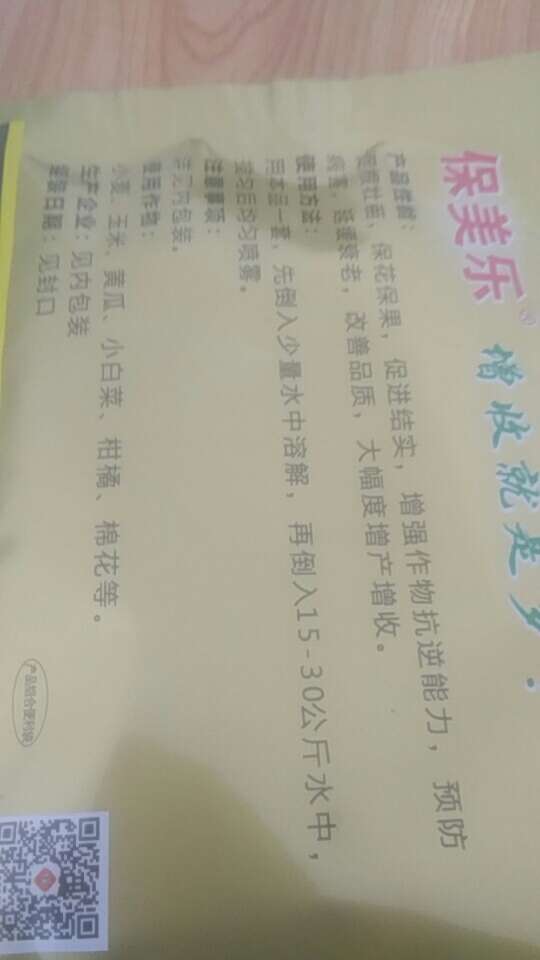 保美乐
增收就是多
产品性能：
保花保果，促进结实，增强作物抗逆能力，预防
病害，延缓衰老，改善品质，大幅度增产增收。
使用方法：
先倒入少量水中溶解，再倒入15-30公斤水中，
搅匀后均匀喷雾。
注意事项：
详见内包装。
使用作物：
小麦、玉米、黄瓜、小白菜、柑橘、棉花等。
生产企业：见内包装
生产日期：见封口
产品组合便利袋